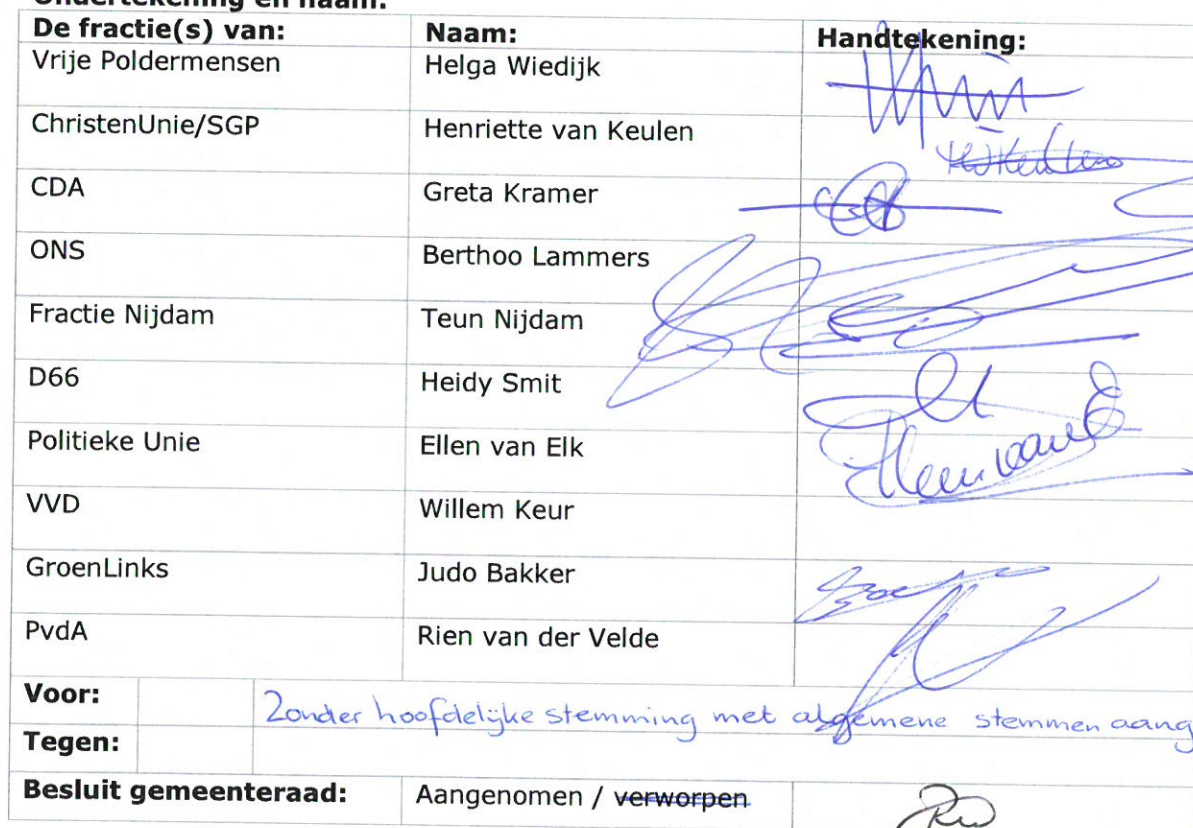 Ondertekening en naam:
De fractie(s) van: Naam: Handtekening:
Vrije Poldermensen Helga Wiedijk
ChristenUnie/SGP Henriette van Keulen
CDA Greta Kramer
ONS Berthoo Lammers
Fractie Nijdam Teun Nijdam
D66 Heidy Smit
Politieke Unie Ellen van Elk
VVD Willem Keur
GroenLinks Judo Bakker
PvdA Rien van der Velde
Voor: Zonder hoofdelijke stemming met algemene stemmen aang
Tegen:
Besluit gemeenteraad: Aangenomen / verworpen